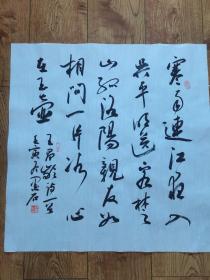 寒雨連江夜入
吴平明送客楚
山孤洛陽親友如
相问一片冰心
在玉壶
王昌齡诗一首
壬寅